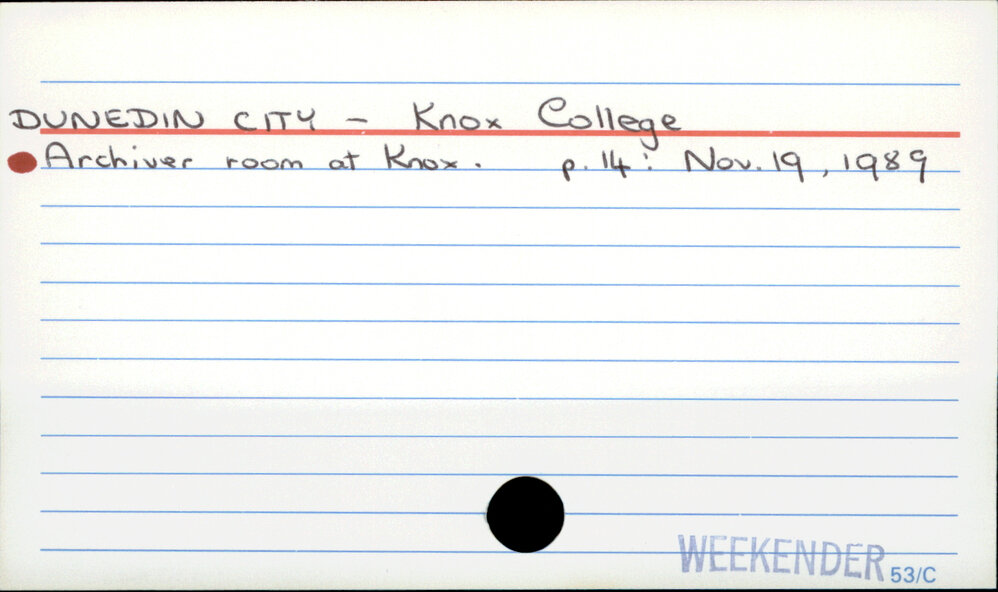 DUNEDIN CITY - Knox College
Archives room at Knox. p. 14: Nov. 19, 1989
WEEKENDER
53/C